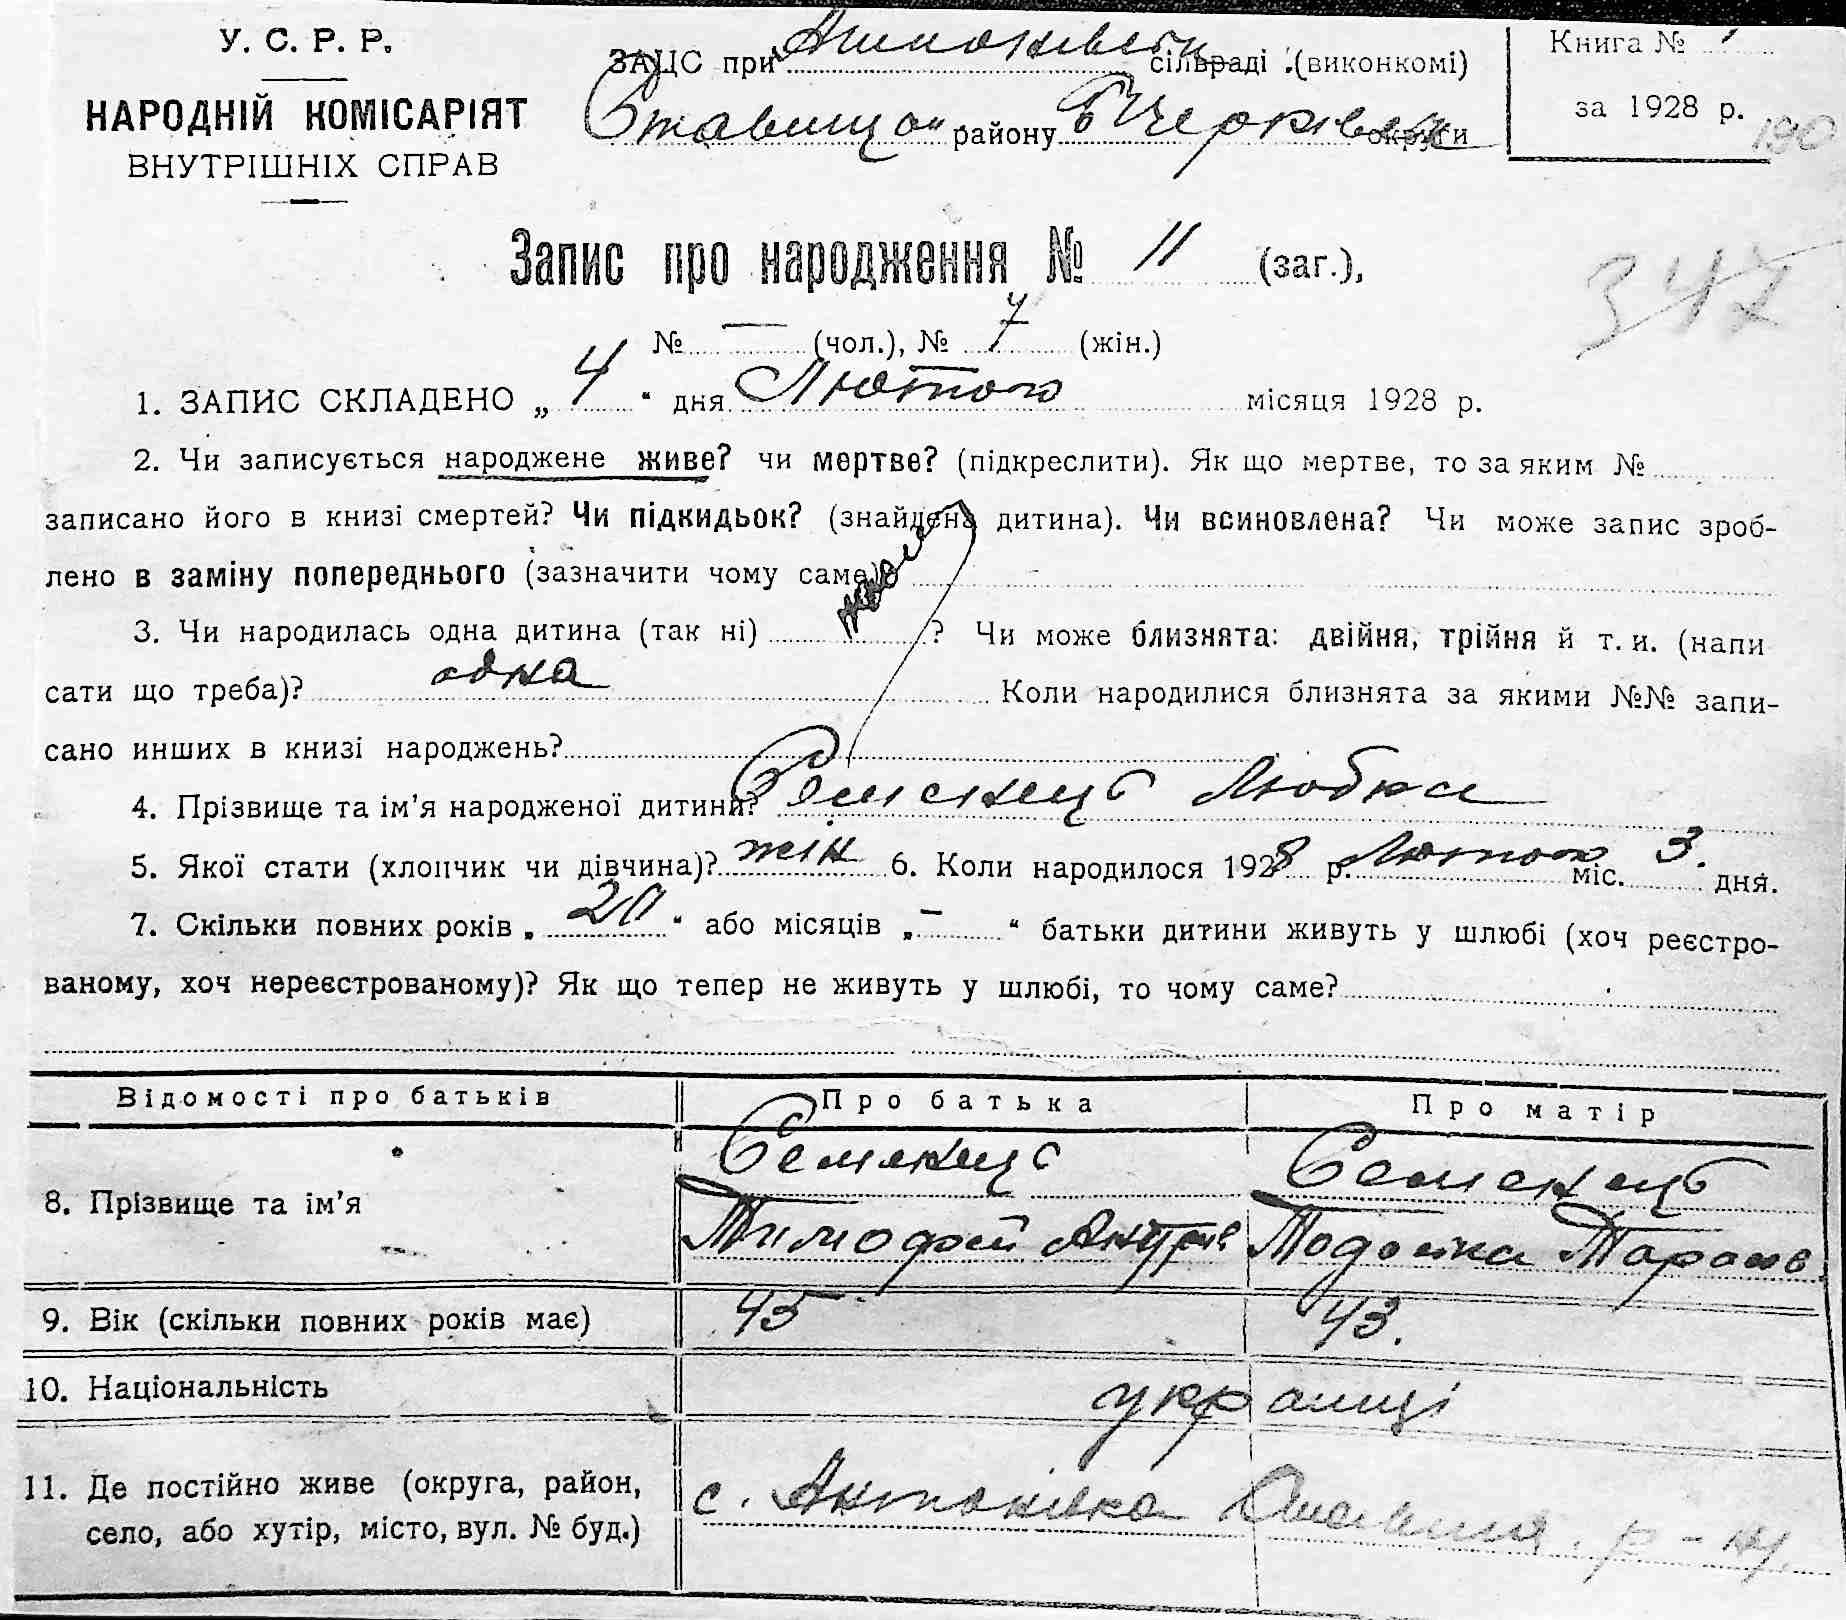 У. С. Р. Р.
НАРОДНІЙ КОМІСАРІЯТ
ВНУТРІШНІХ СПРАВ
ЗАЦС при Антонівськ сільраді (виконкомі)
Ставищан району БЧерківськ округи
Книга №
за 1928 р.
190
Запис про народження № 11 (заг.),
347
№ — (чол.), № 7 (жін.)
1. ЗАПИС СКЛАДЕНО „ 4 “ дня Лютого місяця 1928 р.
2. Чи записується народжене живе? чи мертве? (підкреслити). Як що мертве, то за яким №
записано його в книзі смертей? Чи підкидьок? (знайдена дитина). Чи всиновлена? Чи може запис зроб-
лено в заміну попереднього (зазначити чому саме)?
3. Чи народилась одна дитина (так ні) ? Чи може близнята: двійня, трійня й т. и. (напи
сати що треба)? одна Коли народилися близнята за якими №№ запи-
сано инших в книзі народжень?
4. Прізвище та ім’я народженої дитини? Семенець Любка
5. Якої стати (хлопчик чи дівчина)? жін 6. Коли народилося 1928 р. Лютого міс. 3. дня.
7. Скільки повних років „ 20 “ або місяців „ — “ батьки дитини живуть у шлюбі (хоч реєстро-
ваному, хоч нереєстрованому)? Як що тепер не живуть у шлюбі, то чому саме?
Відомості про батьків Про батька Про матір
8. Прізвище та ім’я Семенець Семенець
Тимофей Андрів Тодоска Тарасов
9. Вік (скільки повних років має) 45 43.
10. Національність українці
11. Де постійно живе (округа, район, с. Антонівка Ставищ. р-ну.
село, або хутір, місто, вул. № буд.)